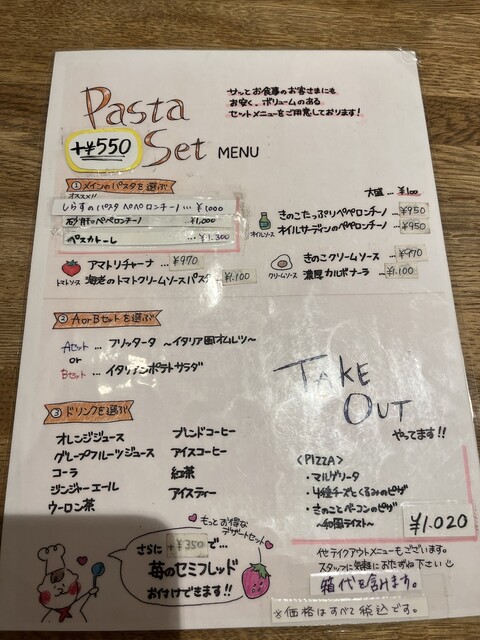 Pasta Set MENU
+¥550
サッとお食事のお客さまにも
お安く、ボリュームのある
セットメニューをご用意しております!
① メインのパスタを選ぶ
オススメ!!
しらすのパスタ ペペロンチーノ … ¥1000
砂肝のペペロンチーノ ¥1,000
ペスカトーレ … ¥1,300
トマトソース
アマトリチャーナ … ¥970
海老のトマトクリームソースパスタ … ¥1,100
大盛 … ¥100
オイルソース
きのこたっぷりペペロンチーノ … ¥950
オイルサーデンのペペロンチーノ … ¥950
クリームソース
きのこクリームソース … ¥970
濃厚カルボナーラ … ¥1,100
② A or Bセットを選ぶ
Aセット … フリッタータ ～イタリア風オムレツ～
or
Bセット … イタリアンポテトサラダ
③ ドリンクを選ぶ
オレンジジュース
グレープフルーツジュース
コーラ
ジンジャーエール
ウーロン茶
ブレンドコーヒー
アイスコーヒー
紅茶
アイスティー
もっとお得な
デザートセット
さらに +¥350 で…
苺のセミフレッド
お付けできます!!
TAKE OUT
やってます!!
〈PIZZA〉
・マルゲリータ
・4種チーズとくるみのピザ
・きのことベーコンのピザ
～和風テイスト～
¥1.020
他テイクアウトメニューもございます。
スタッフに気軽におたずね下さい
箱代を含みます。
※価格はすべて税込です。